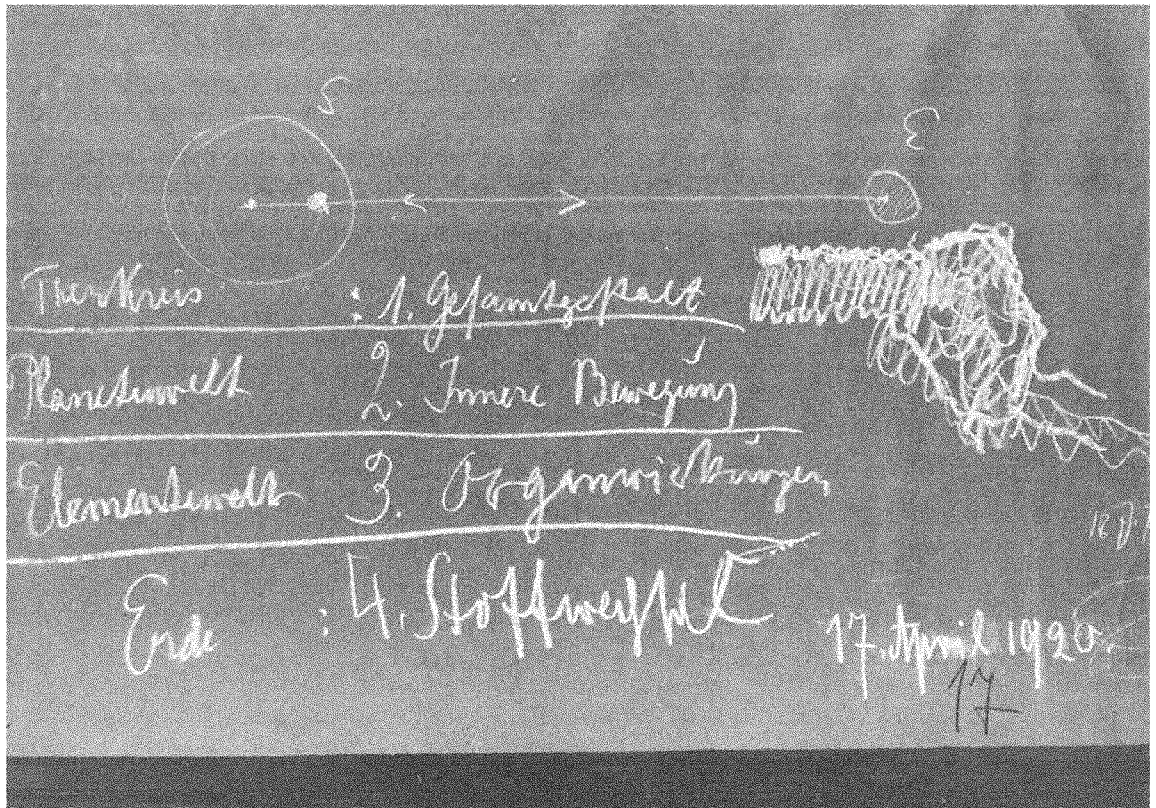 S
E
Tierkreis : 1. Gesamtgestalt
Planetenwelt 2. Innere Bewegung
Elementenwelt 3. Organwirkungen
Erde : 4. Stoffwechsel
17. April 1920.
17